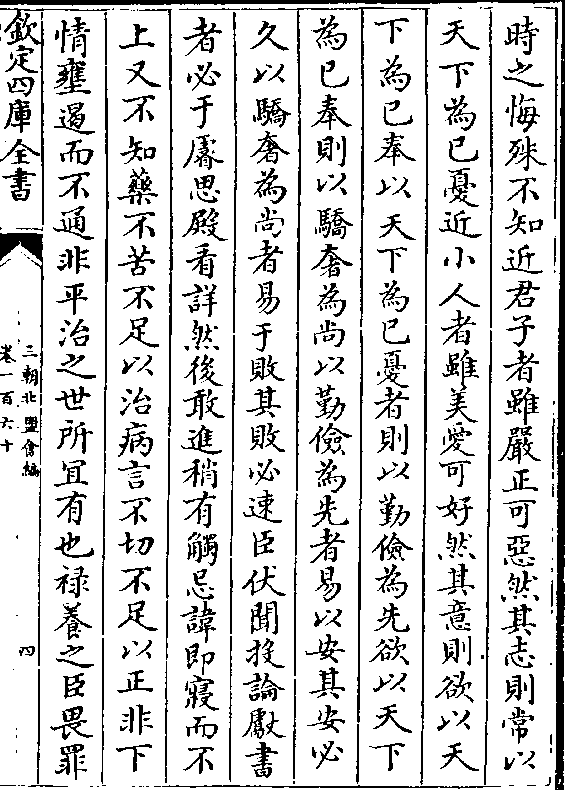 時之悔殊不知近君子者雖嚴正可惡然其志則常以
天下為已憂近小人者雖美愛可好然其意則欲以天
下為已奉以天下為已憂者則以勤儉為先欲以天下
為已奉則以驕奢為尚以勤儉為先者易以安其安必
久以驕奢為尚者易于敗其敗必速臣伏聞投論獻書
者必于睿思殿看詳然後敢進稍有觸忌諱即寢而不
上又不知藥不苦不足以治病言不切不足以正非下
情壅遏而不通非平治之世所宜有也禄養之臣畏罪
欽定四庫全書
三朝北盟會編
卷一百六十
四